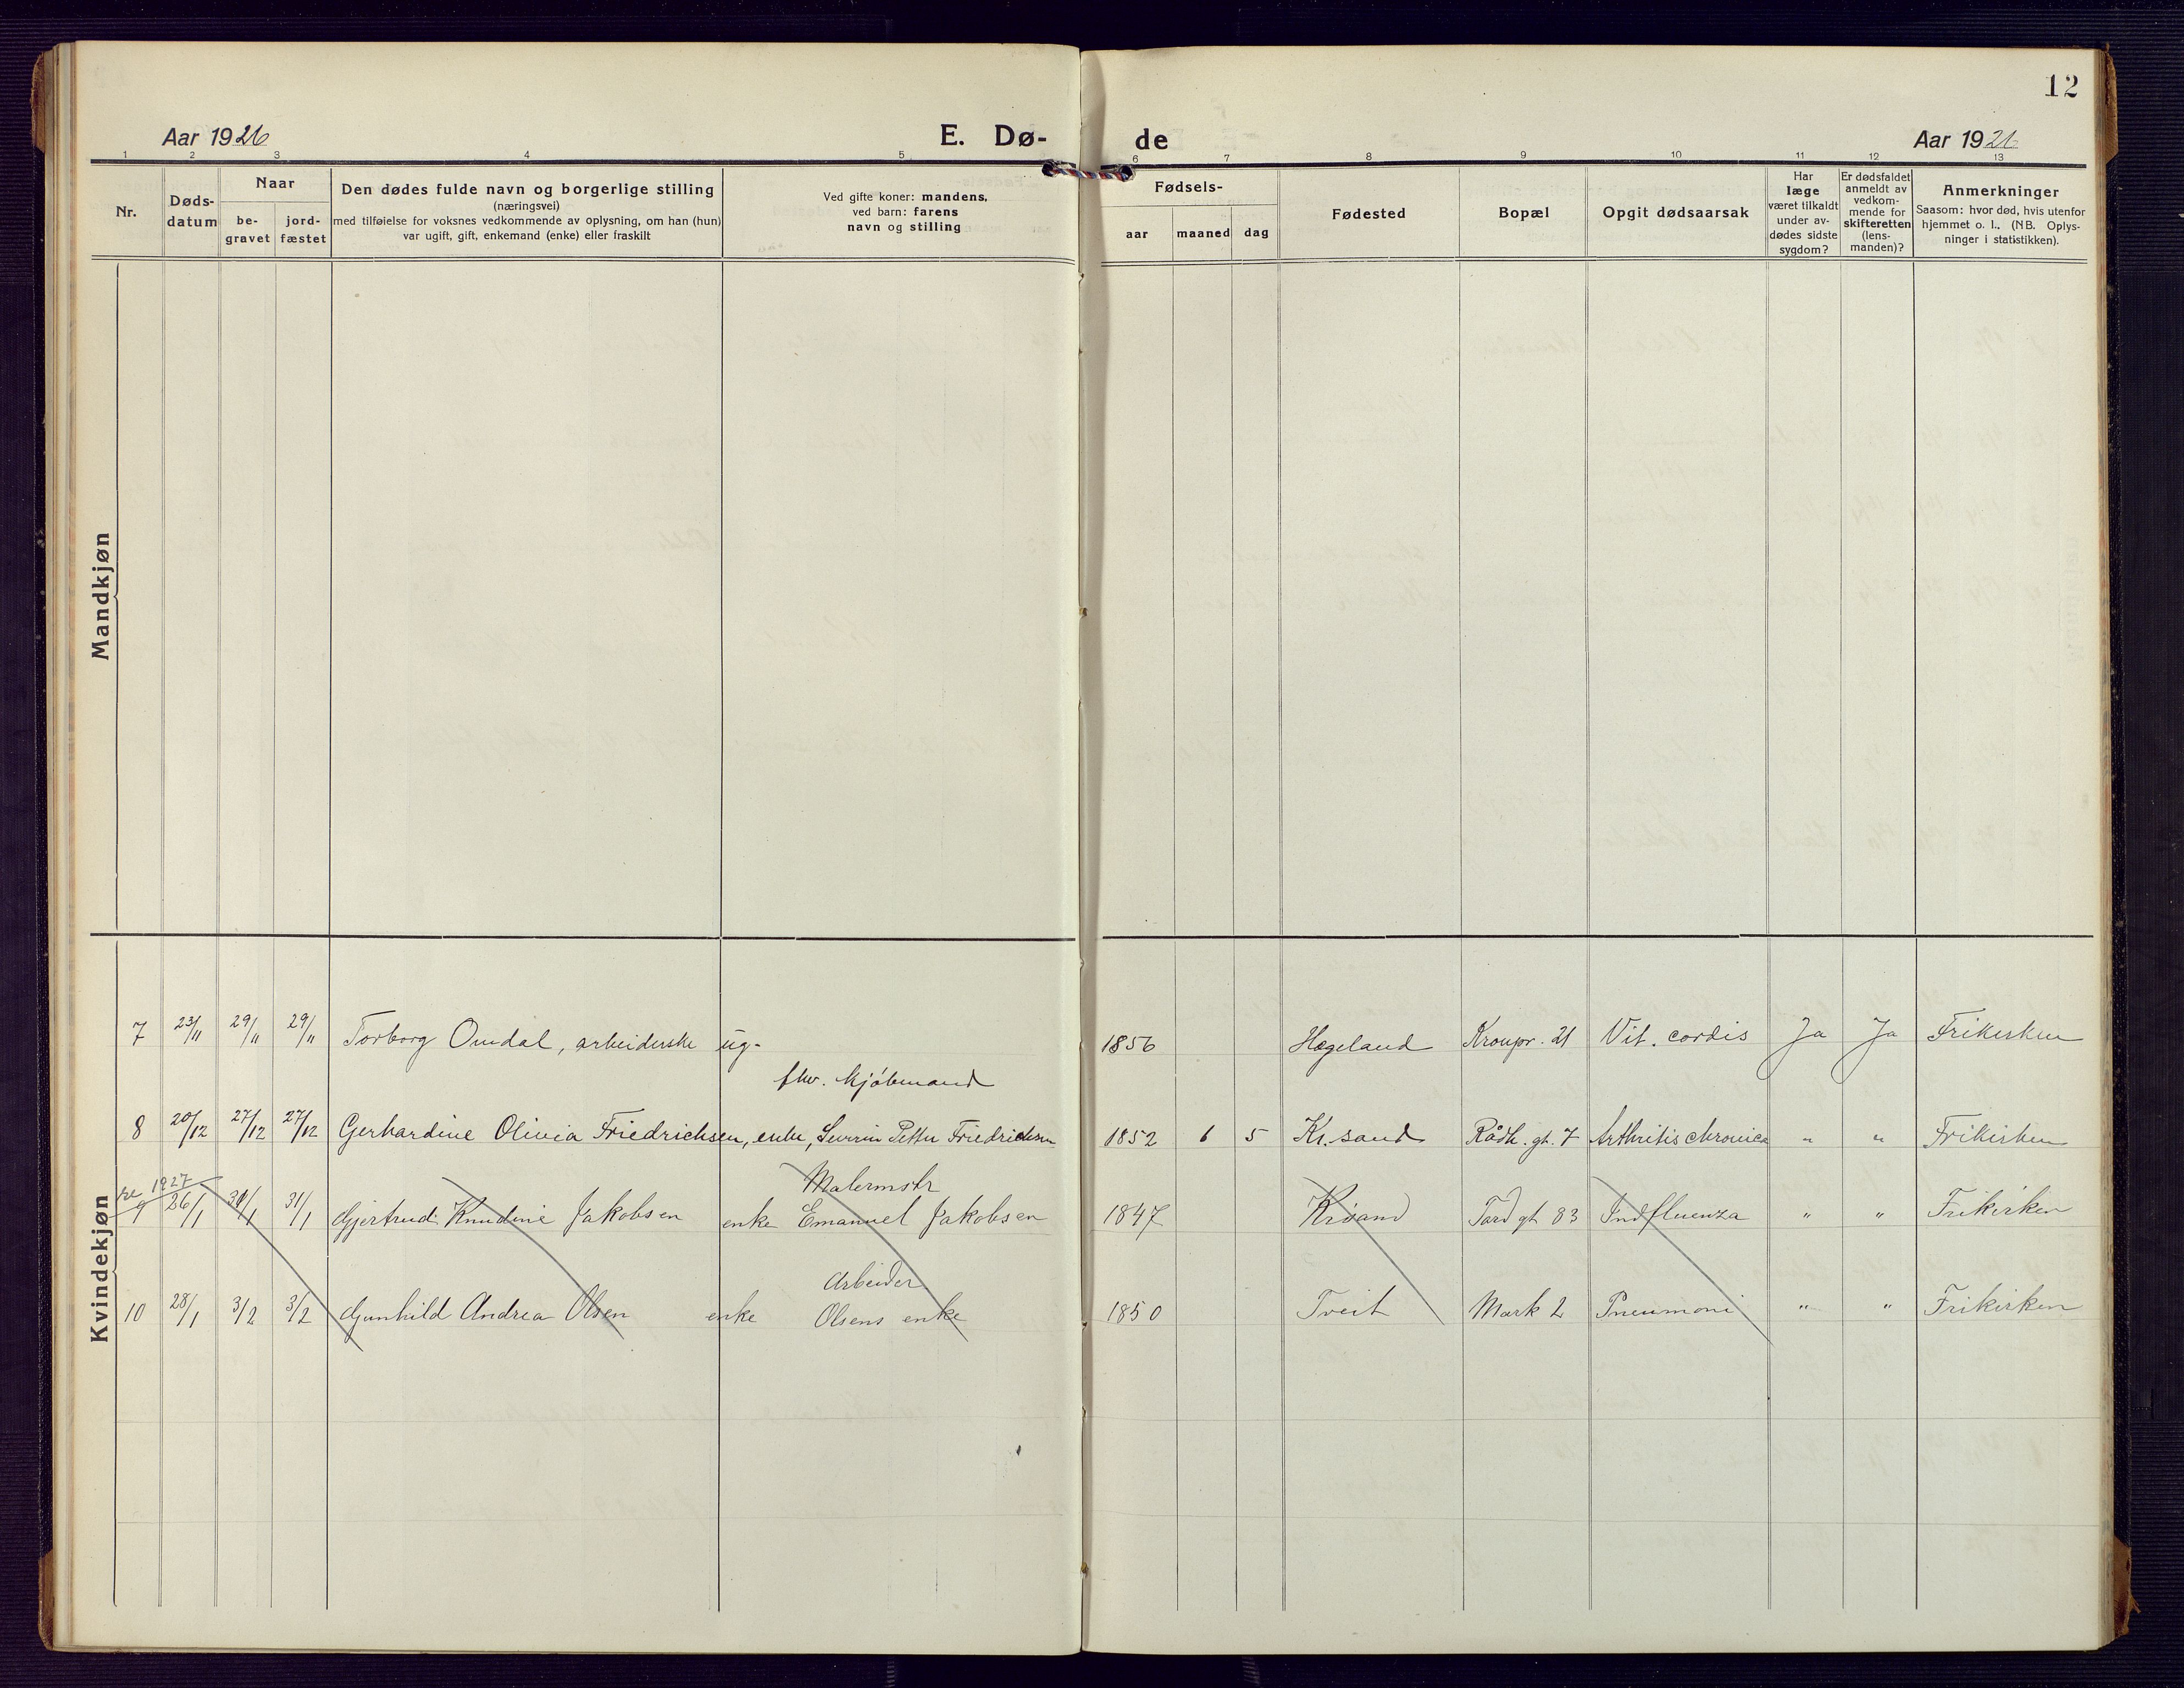 12
Aar 1926 E. Dø- de Aar 1926
1 2 3 4 5 6 7 8 9 10 11 12 13
Nr.
Døds-
datum
Naar
be-
gravet
jord-
fæstet
Den dødes fulde navn og borgerlige stilling
(næringsvei)
med tilføielse for voksnes vedkommende av oplysning, om han (hun)
var ugift, gift, enkemand (enke) eller fraskilt
Ved gifte koner: mandens,
ved barn: farens
navn og stilling
Fødsels-
aar maaned dag
Fødested
Bopæl
Opgit dødsaarsak
Har
læge
været tilkaldt
under av-
dødes sidste
sygdom?
Er dødsfaldet
anmeldt av
vedkom-
mende for
skifteretten
(lens-
manden)?
Anmerkninger
Saasom: hvor død, hvis utenfor
hjemmet o. l., (NB. Oplys-
ninger i statistikken).
Mandkjøn
Kvindekjøn
7 23/11 29/11 29/11 Torborg Omdal, arbeiderske ug. 1856 Hægeland Kronpr. 21 Vit. cordis Ja Ja Frikirken
fhv. kjøbmand
8 20/12 27/12 27/12 Gerhardine Olivia Friedrichsen, enke, Severin Petter Friedrichsen 1852 6 5 Kr.sand Rådh. gt. 7 Arthritis chronica " " Frikirken
1927
Malermstr
9 26/1 31/1 31/1 Gjertrud Knudine Jakobsen enke Emanuel Jakobsen 1847 Krsand Tord gt 83 Indfluenza " " Frikirken
Arbeider
10 28/1 3/2 3/2 Gunhild Andrea Olsen enke Olsens enke 1850 Tveit Mark 2 Pneumoni " " Frikirken